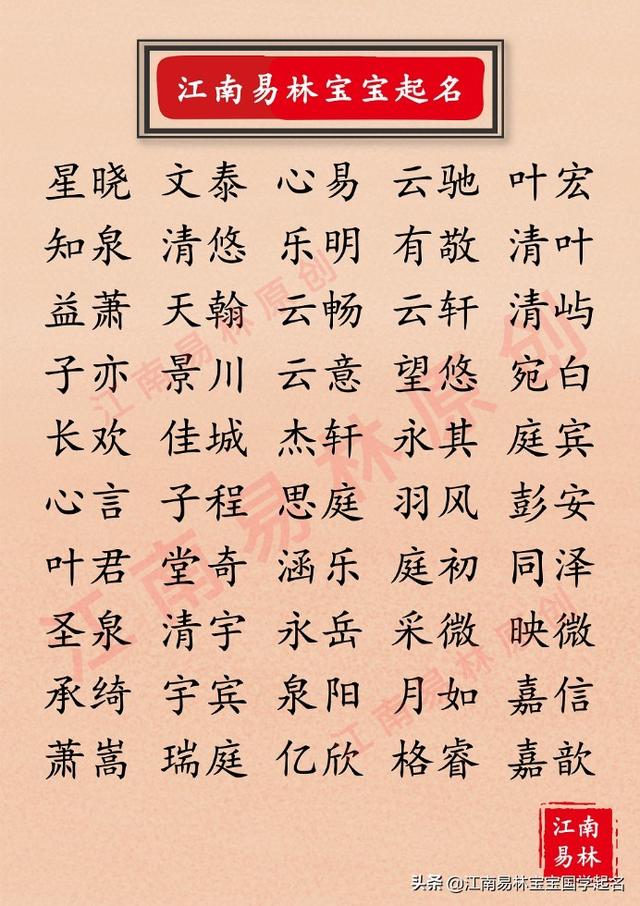 江南易林宝宝起名
星晓 文泰 心易 云驰 叶宏
知泉 清悠 乐明 有敬 清叶
益萧 天翰 云畅 云轩 清屿
子亦 景川 云意 望悠 宛白
长欢 佳城 杰轩 永其 庭宾
心言 子程 思庭 羽风 彭安
叶君 堂奇 涵乐 庭初 同泽
圣泉 清宇 永岳 采微 映微
承绮 宇宾 泉阳 月如 嘉信
萧嵩 瑞庭 亿欣 格睿 嘉歆
江南易林原创
江南易林原创
江南易林原创
江南
易林
头条 @江南易林宝宝国学起名